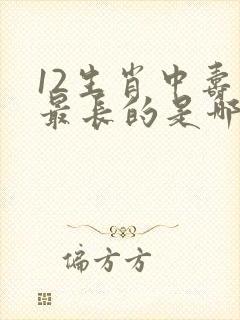 12生肖中寿
最长的是哪
偏方方